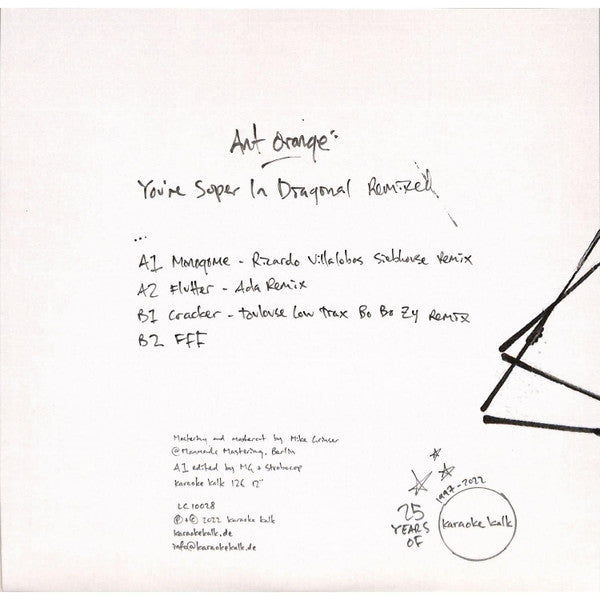 Ant Orange:
You're Super In Diagonal Remixed
...
A1 Monogome - Ricardo Villalobos Siebhouse Remix
A2 Flutter - Ada Remix
B1 Cracker - Toulouse Low Trax Bo Bo Zy Remix
B2 FFF
Mastering and mastercut by Mike Grinser
@Manmade Mastering, Berlin
A1 edited by MG + Strobocop
Karaoke Kalk 126 12"
LC 10028
℗+© 2022 karaoke kalk
karaokekalk.de
info@karaokekalk.de
1997-2022
25
YEARS
OF
karaoke kalk